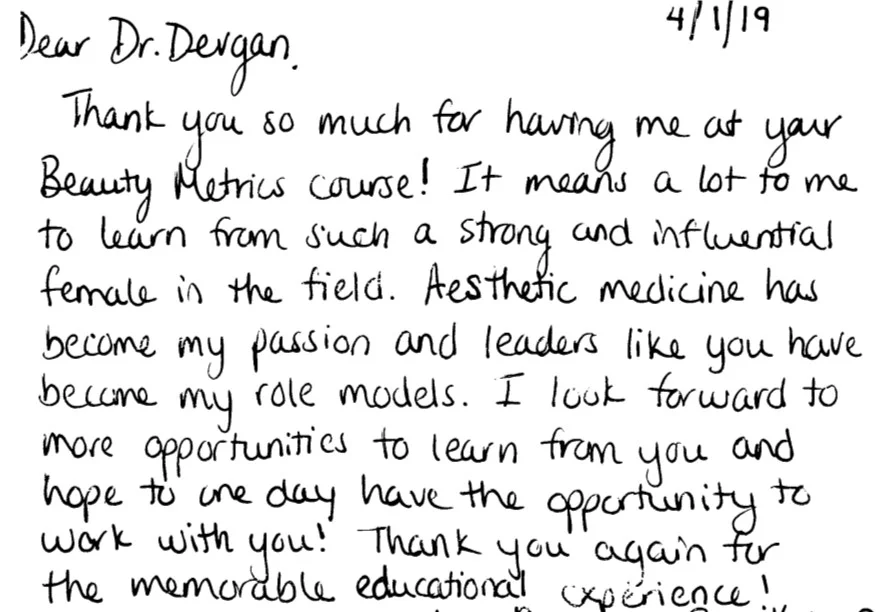 4/1/19
Dear Dr. Devgan,
Thank you so much for having me at your
Beauty Metrics course! It means a lot to me
to learn from such a strong and influential
female in the field. Aesthetic medicine has
become my passion and leaders like you have
become my role models. I look forward to
more opportunities to learn from you and
hope to one day have the opportunity to
work with you! Thank you again for
the memorable educational experience!